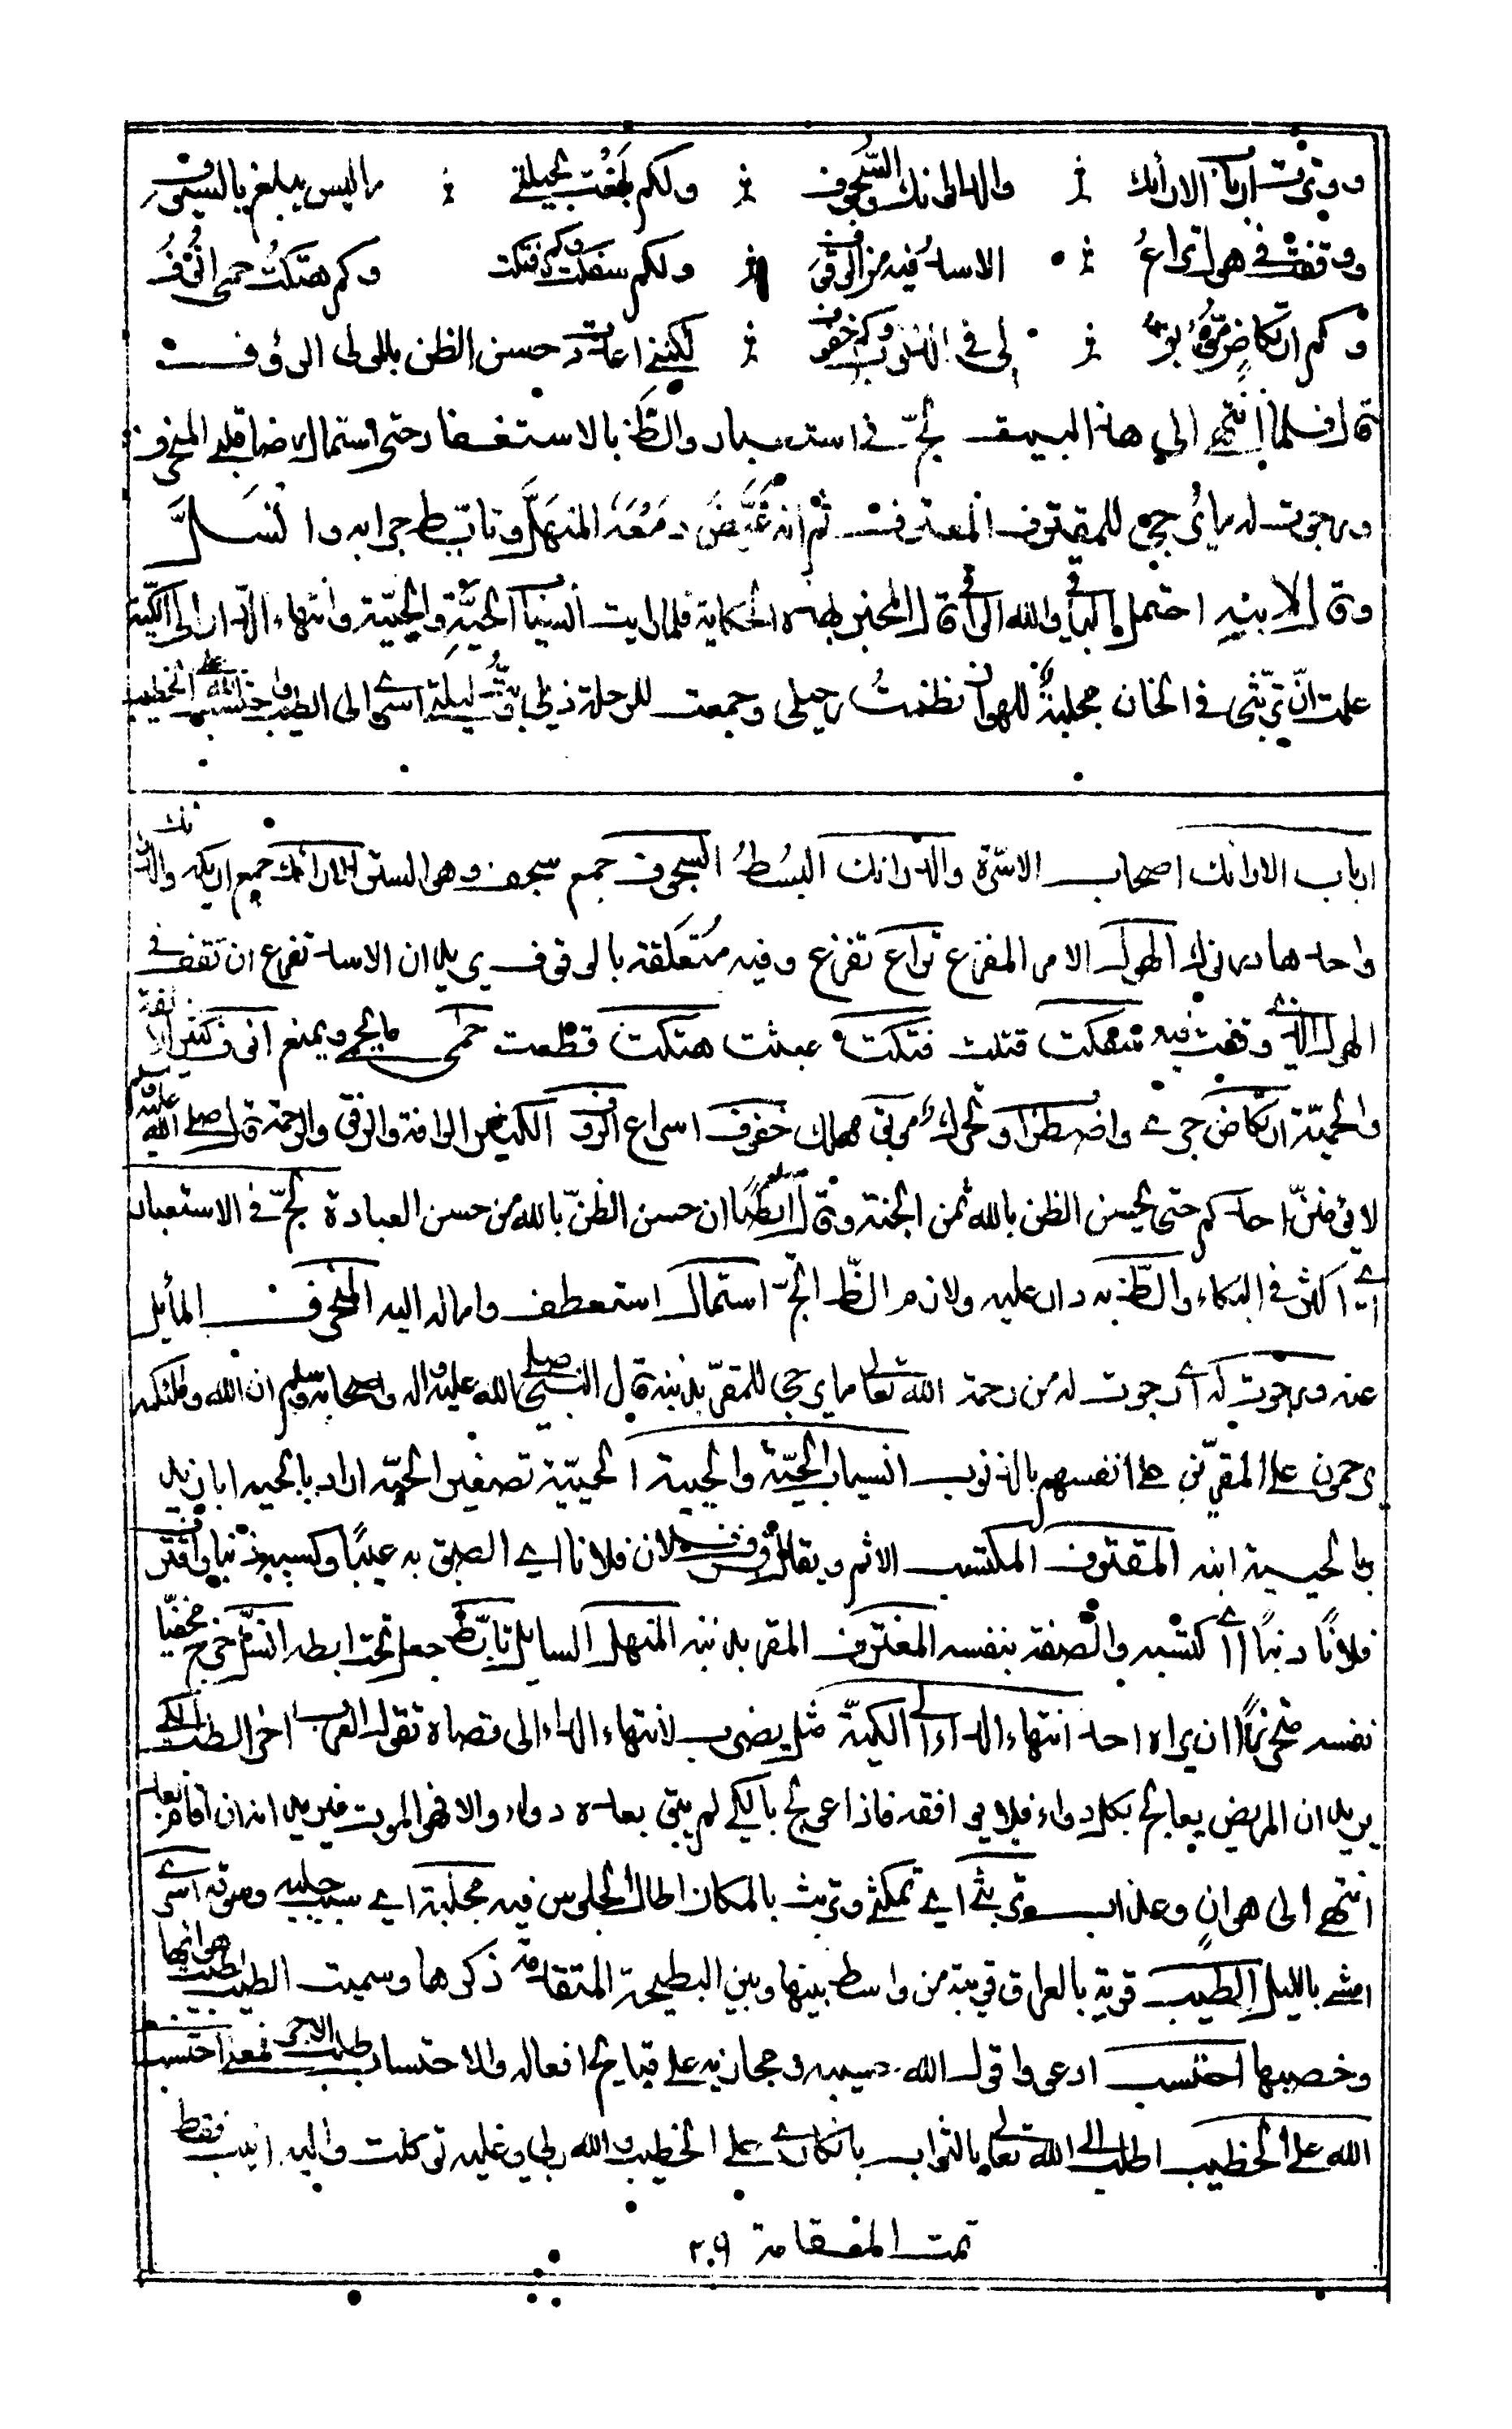 ووترت ارباب الارائك والدرانك السجوف ولكم بلغت بحيلتي ما ليس يبلغ بالسيوف
ووقفت في هول تراعُ الاسد فيه من الوقوف ولكم سفكت وكم فتكت وكم هتكت حمى انُوف
وكم ارتكاض موبق لي في الذنوب وكم خفوف لكنني اعددت حسن الظن بالمولى الرؤوف
قال فلما انتهى الى هذا البيت لجّ في استعبار والظّ بالاستغفار حتى استمال رضا قلبي المنحرف
ورجوت له ما يُرجى للمقترف المعترف ثم انه غَيَّضَ دمعَهُ المنهَلَّ وتابّط جرابه وانسَلَّ
وقال لابنه احتمل الباقي والله الواقي قال المخبر بهذه الحكاية فلما رايت انسياب الحيّة والحييّة وانتهاء الدّاء الى الكيّة
علمت انّ تربّثي في الخان مجلبةٌ للهوان فضممتُ رحيلي وجمعت للرحلة ذيلي وبتّ ليلتي اسرى الى الطيب واحتسب الله على الخطيب
ارباب الارائك اصحاب الاسّرة والدرانك البُسُطُ السجوف جمع سجف وهو الستر الارائك جمع اريكة والدرانك
واحدها درنوك الهول الامر المفزع تراع تفزع وفيه مُتعلّقة بالوقوف يريد ان الاسد تفزع ان تقف في
الهول الذي وقفت فيه سفكت قتلت فتكت عبثت هتكت قطعت حمى ما يحمى ويمنع انوف كثير الانفة
والحميّة ارتكاض جرى واضطراب وتحرك موبق مهلك خفوف اسراع الرؤف الكثير الرافة والرفق والرحمة قال صلى الله عليه وسلم
لا يموتنّ احدكم حتى يحسن الظن بالله ثمن الجنة وقال ايضا ان حسن الظنّ بالله من حسن العبادة لجّ في الاستعبار
اى اكثر في البكاء والظّ به دار عليه ولازم الظّ الحّ استمال استعطف وامال اليه المنحرف المائل
عنه ورجوت له اى رجوت له من رحمة الله تعالى ما يرجى للمقرّ بذنبه قال النبي صلى الله عليه واله واصحابه وسلم ان الله وملئكته
يرحمون على المقرّين على انفسهم بالذنوب انسياب الحيّة والحيية الحييّة تصغير الحيّة اراد بالحيه ابا زيد
وبالحيية ابنه المقترف المكتسب الاثم ويقال قرف فلان فلانا اى الصق به عيبًا وكسبه ذنبا واقترف
فلانًا ذنبًا اى اكتسبه والصقه بنفسه المعترف المقر بذنبه المنهل السايل تابّط جعل تحت ابطه انسّل خرج مخفيّا
نفسه متحرزًا ان يراه احد انتهاء الداء الى الكيّة مثل يضرب لانتهاء الداء الى قصاه تقول العرب اخر الطب الكي
يريد ان المريض يعالج بكل دواء فلا يوافقه فاذا عولج بالكي لم يبق بعده دواء والا فهو الموت فيريد انه ان اقام بعد
انتهى الى هوان وعذاب تربثي اى تمكثي وتربث بالمكان اطال الجلوس فيه مجلبة اى سبب جلبه وسوقه اسرى
امشى بالليل الطيب قرية بالعراق قريبة من واسط بينها وبين البطيحة المتقدمة ذكرها وسميت الطيب لطيب هوائها
وخصبها احتسب ادعو واقول الله حسيبه ومجازيه على قبايح افعاله والاحتساب طلب الاجر فمعنى احتسب
الله على الخطيب اطلب الى الله تعالى بالثواب بانكاري على الخطيب والله ربي وعليه توكلت واليه انيب فقط
تمت المقامة ٢٠٩